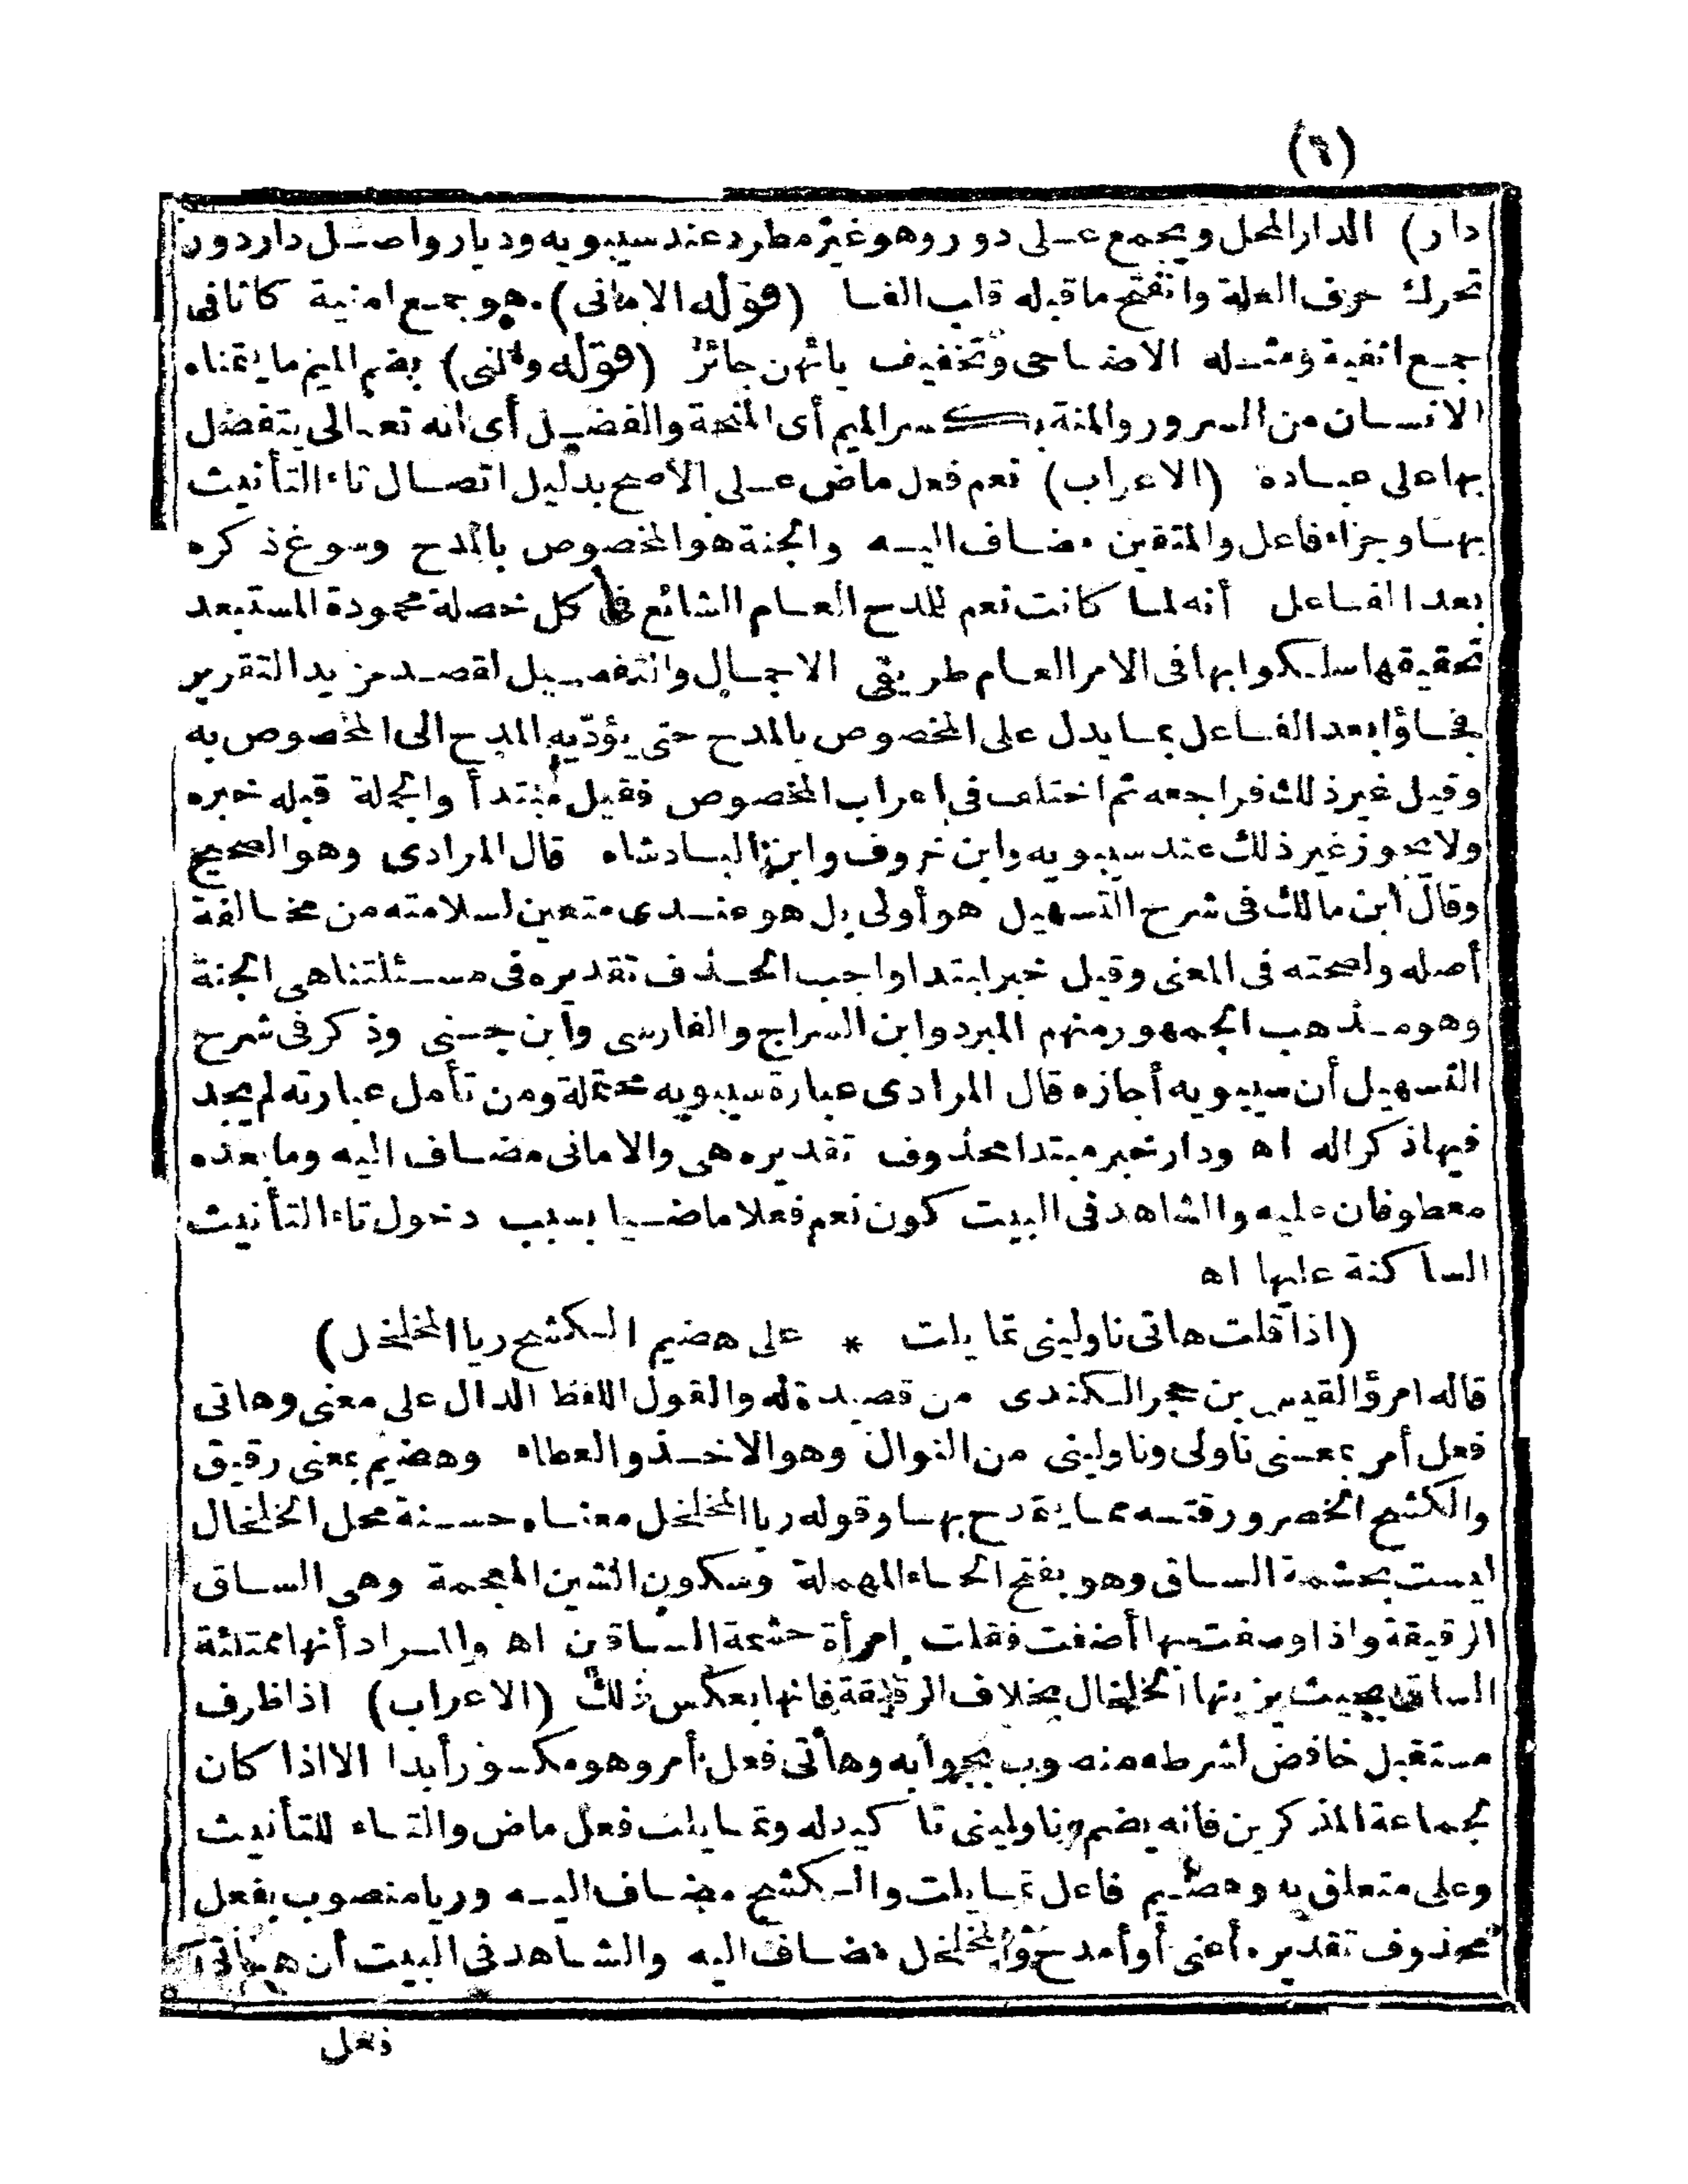 (٦)
دار) الدار المحل ويجمع على دور وهو غير مطرد عند سيبويه وديار واصل دار دور
تحرك حرف العلة وانفتح ما قبله قلب الفا (قوله الامانى) هو جمع امنية كاثافى
جمع اثفية ومثله الاضاحى وتخفيف يائهن جائز (قوله والمنى) بضم الميم ما يتمناه
الانسان من السرور والمنة بكسر الميم أى المنحة والفضل أى انه تعالى يتفضل
بها على عباده (الاعراب) نعم فعل ماض على الاصح بدليل اتصال تاء التأنيث
بها وجزاء فاعل والمتقين مضاف اليه والجنة هو المخصوص بالمدح وسوغ ذكره
بعد الفاعل أنه لما كانت نعم للمدح العام الشائع فى كل خصلة محمودة المستبعد
تحقيقها سلكوا بها فى الامر العام طريقى الاجمال والتفصيل لقصد مزيد التقرير
فجاؤا بعد الفاعل بما يدل على المخصوص بالمدح حتى يؤديه المدح الى المخصوص به
وقيل غير ذلك فراجعه ثم اختلف فى اعراب المخصوص فقيل مبتدأ والجملة قبله خبره
ولا يجوز غير ذلك عند سيبويه وابن خروف وابن البادشاه قال المرادى وهو الصحيح
وقال ابن مالك فى شرح التسهيل هو أولى بل هو عندى متعين لسلامته من مخالفة
أصله ولصحته فى المعنى وقيل خبر ابتدا واجب الحذف تقديره فى مسئلتنا هى الجنة
وهو مذهب الجمهور منهم المبرد وابن السراج والفارسى وابن جنى وذكر فى شرح
التسهيل أن سيبويه أجازه قال المرادى عبارة سيبويه محتملة ومن تأمل عبارته لم يجد
فيها ذكرا له اه ودار خبر مبتدا محذوف تقديره هى والامانى مضاف اليه وما بعده
معطوفان عليه والشاهد فى البيت كون نعم فعلا ماضيا بسبب دخول تاء التأنيث
الساكنة عليها اه
(اذا قلت هاتى ناولينى تمايلت * على هضيم الكشح ريا المخلخل)
قاله امرؤ القيس بن حجر الكندى من قصيدة له والقول اللفظ الدال على معنى وهاتى
فعل أمر بمعنى ناولى وناولينى من النوال وهو الاخذ والعطاء وهضيم بمعنى رقيق
والكشح الخصر ورقته مما يتمدح بها وقوله ريا المخلخل معناه حسنة محل الخلخال
ليست بحشمة الساق وهو بفتح الحاء المهملة وسكون الشين المعجمة وهى الساق
الرقيقة واذا وصفت بها أضفت فقلت امرأة حشمة الساقين اه والمراد أنها ممتلئة
الساق بحيث يزينها الخلخال بخلاف الرقيقة فانها بعكس ذلك (الاعراب) اذا ظرف
مستقبل خافض لشرطه منصوب بجوابه وهاتى فعل أمر وهو مكسور أبدا الا اذا كان
لجماعة المذكرين فانه يضم وناولينى تاكيد له وتمايلت فعل ماض والتاء للتأنيث
وعلى متعلق به وهضيم فاعل تمايلت والكشح مضاف اليه وريا منصوب بفعل
محذوف تقديره أعنى أو أمدح والمخلخل مضاف اليه والشاهد فى البيت أن هاتى
فعل